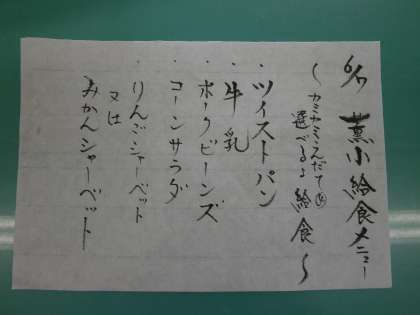 6/7 薫小給食メニュー
〜カミカミこんだて
選べるよ給食〜
・ツイストパン
・牛乳
・ポークビーンズ
・コーンサラダ
・りんごシャーベット
又は
みかんシャーベット